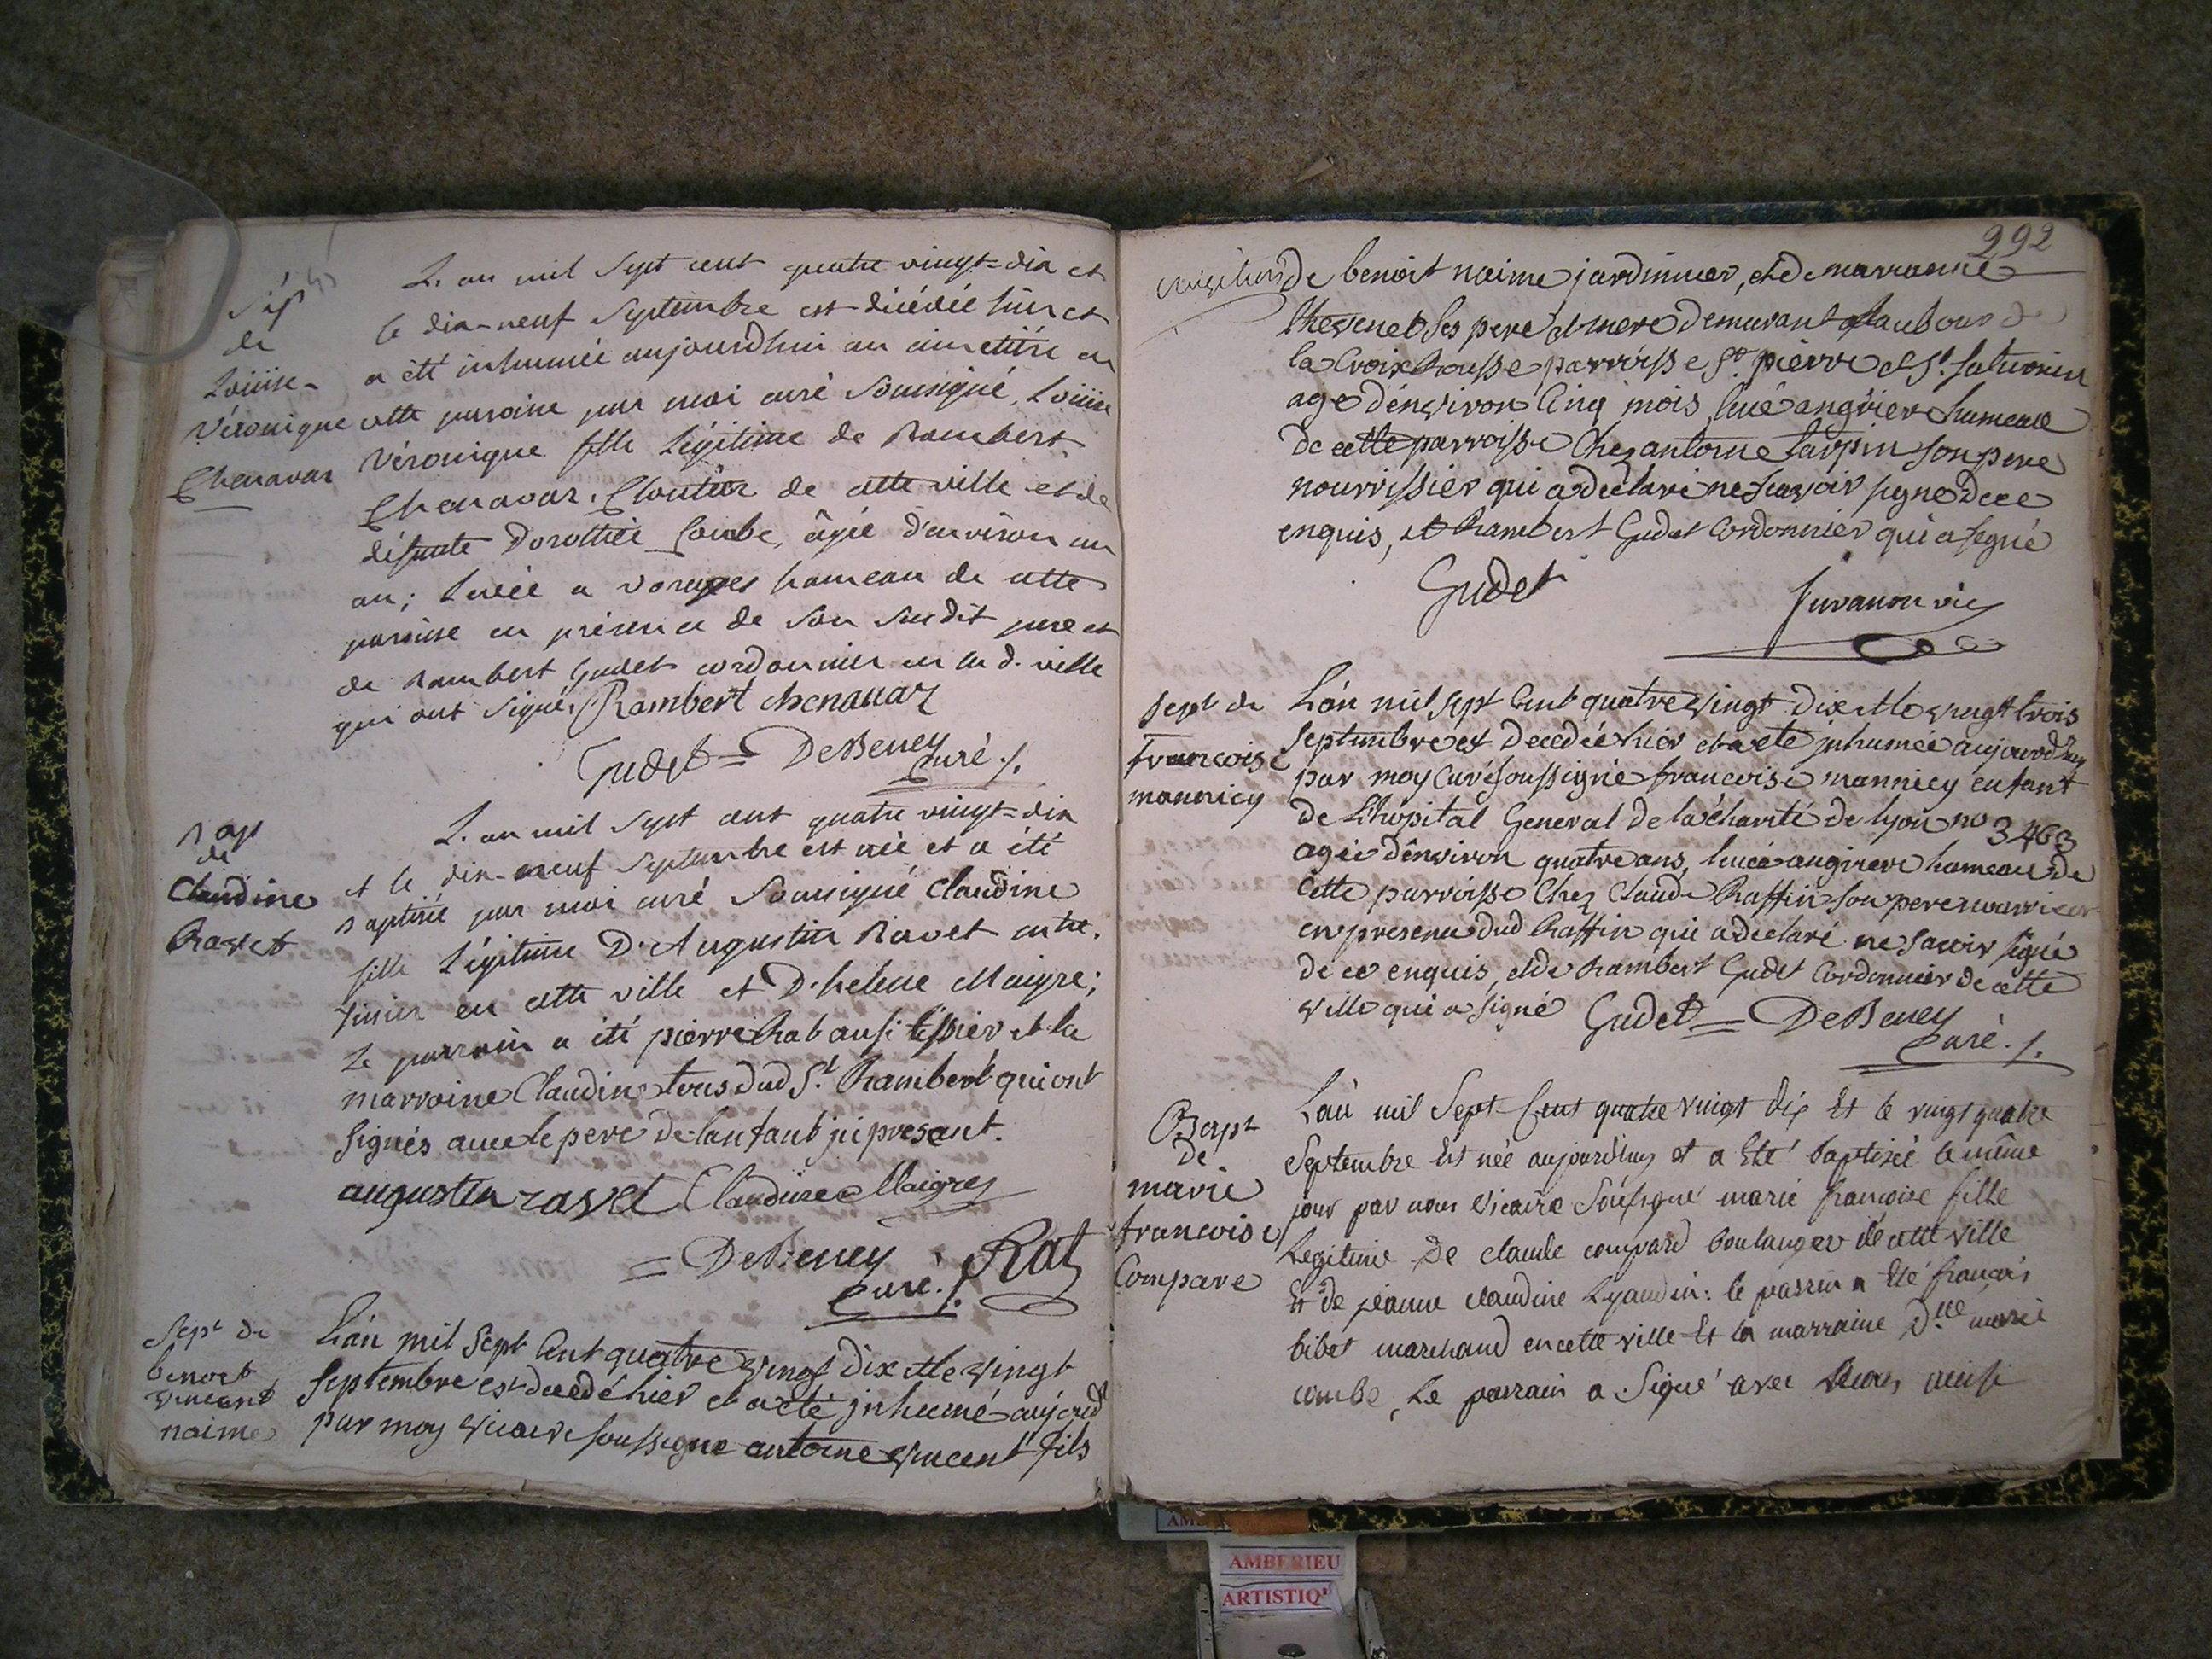 Sep
de
Loüise
Véronique
Chenavar
L'an mil sept cent quatre vingt=dix et
le dix-neuf septembre est décédée hier et
a été inhumée aujourdhui au cimetière de
cette paroisse par moi curé soussigné, Loüise
Véronique fille légitime de Rambert
Chenavar, Cloutier de cette ville et de
défunte Dorothée Combe, âgée d'environ un
an; hameau de cette
paroisse en présence de son susdit pere et
de Rambert Gudet cordonnier en lad. ville
qui ont signé. Rambert chenavar
Gudet = DeBeney
Curé ./.
Bap
de
Claudine
Ravet
L'an mil sept cent quatre vingt=dix
et le dix-neuf septembre est née et a été
baptisée par moi curé soussigné Claudine
fille légitime D'Augustin Ravet
en cette ville et D'helene Maigre;
Le parrain a été pierre Rat aussi tissier et la
marraine Claudine tous dud St. Rambert qui ont
signés avec le pere de lanfant ici presant.
augustin ravet Claudine Maigre
= DeBeney Rat
Curé ./.
Sept de
benoit
vincent
naime
L'an mil sept cent quatre vingt dix et le vingt
septembre est decedé hier et a eté inhumé aujourd
par moy vicaire soussigne antoine vincent fils
292
de benoit naime jardinnier, et de marianne
thevenet ses pere et mere demeurant faubour de
la Croix Rousse parroisse St. pierre et St. saturnin
agé d'environ Cinq mois, hameau
de cette parroisse Chez antoine tarpin son pere
nourrissier qui a déclaré ne scavoir signe de ce
enquis, et Rambert Gudet Cordonnier qui a segné
Gudet
Juvanon vic
sept de
francoise
mannicy
L'an mil sept Cent quatre vingt dix et le vingtt trois
septembre est decedée hier et a eté inhumée aujourdhuy
par moy Curé soussigné francoise mannicy enfant
de L'hôpital General de la charité de lyon no 3463
agée d'environ quatre ans, hameau de
cette parroisse Chez Claude Raffin son pere nourricier
en presence dud Raffin qui a declaré ne savoir signé
de ce enquis, et de Rambert Gudet Cordonnier de cette
ville qui a signé Gudet = DeBeney
Curé ./.
Bapt
de
marie
francoise
Compare
L'an mil sept Cent quatre vingt dix Et le vingt quatre
septembre Est née aujourdhuy et a Eté baptisée le même
jour par nous vicaire soussigné marie françoise fille
Legitime de claude compard boulanger de cette ville
Et de jeanne claudine Lyaudin: le parrin a Eté françois
bibet marchand en cette ville Et la marraine Dlle marie
combe, Le parrain a signé avec Nous ainsi
AMBERIEU
ARTISTIQ'